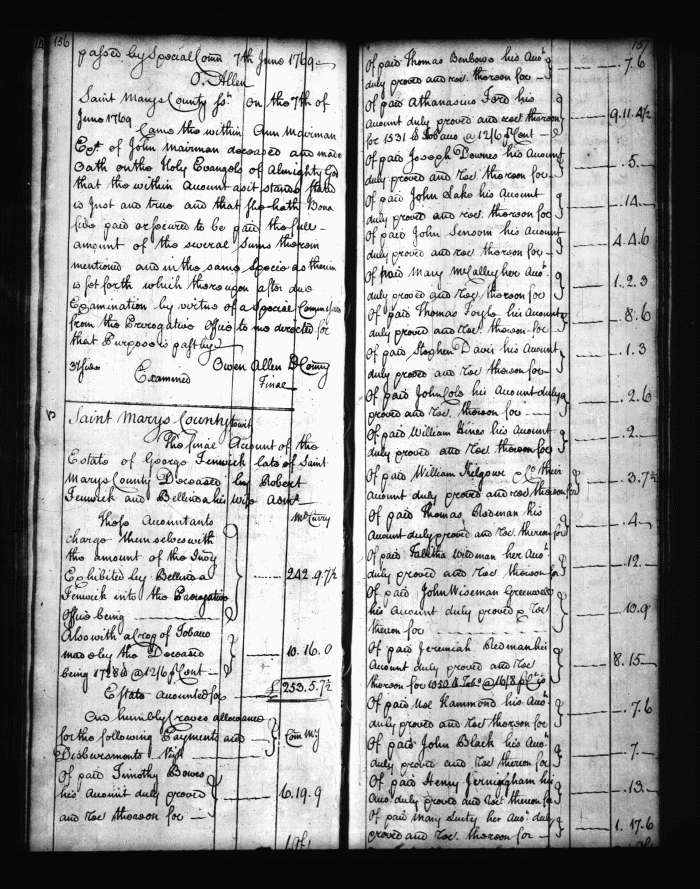 156
passed by Special Com̃n 7th June 1769
O. Allen
Saint Marys County Ss. on the 7th of
June 1769
Came the within Ann Mairiman
Exx of John Mairman deceased and made
Oath on the Holy Evangels of Almighty God
that the within Account as it stands stated
is Just and true and that she hath Bona
fide paid or secured to be paid the full
amount of the several Sums therein
mentioned and in the same Specie as therein
is set forth which thereupon after due
Examination by virtue of a Special Commission
from the Prerogative Office to me directed for
that Purpose is past by
Owen Allen D Comry
Examined
Final
Saint Marys County towit
The final Account of the
Estate of George Fenwick late of Saint
Marys County Deceased by Robert
Fenwick and Bellinda his wife Admx
These Accountants
charge themselves with
the amount of the Invy
Exhibited by Bellinda
Fenwick into the Prerogative
Office being
242.9.7½
Also with a Crop of Tobacco
made by the Deceased
being 1728 lb @ 12/6 ⅌ Cent
10.16.0
Estate Accounted for £ 253.5.7½
And humbly craves allowance
for the following Payments and
Disbursements Vizt
Com My
Of paid Timothy Bowes
his Account duly proved
and Rec thereon for
6.19.9
157
Of paid Thomas Benbow his Acct
duly proved and rec. thereon for
.7.6
Of paid Athanasius Ford his
Account duly proved and rect thereon
for 1531 lb Tobacco @ 12/6 ⅌ Cent
9.11.4½
Of paid Joseph Downes his Account
duly proved and Rec. thereon for
.5.
Of paid John Lake his Account
duly proved and rec. thereon for
.14.
Of paid John Sensom his Account
duly proved and rec. thereon for
4.4.6
Of paid Mary McCalley her Acct
duly proved and Rec thereon for
1.2.3
Of paid Thomas his Account
duly proved and Rec. thereon for
.8.6
Of paid Stephen Davis his Account
duly proved and Rec thereon for
.1.3
Of paid John Cole his Account duly
proved and Rec. thereon for
.2.6
Of paid William Hines his Account
duly proved and Rec thereon for
.2.
Of paid William Kilgour & Co their
Account duly proved and rec thereon for
.3.7½
Of paid Thomas Redman his
Account duly proved and Rec. thereon for
.4.
Of paid Tabitha Wiseman her Acct
duly proved and Rec thereon for
.12.
Of paid John Wiseman Greenwell
his Account duly proved & Rec
thereon for
.10.9
Of paid Jeremiah Redman his
Account duly proved and Rec
thereon for 1050 lb Tobo @ 16/8 ⅌ Ct
8.15.
Of paid Hammond his Acct
duly proved and Rec thereon for
.7.6
Of paid John Black his Acct
duly proved and Rec. thereon for
.7.
Of paid Henry Jerningham his
Acct duly proved and Rect thereon for
.13.
Of paid Mary her Acct duly
proved and Rec. thereon for
1.17.6